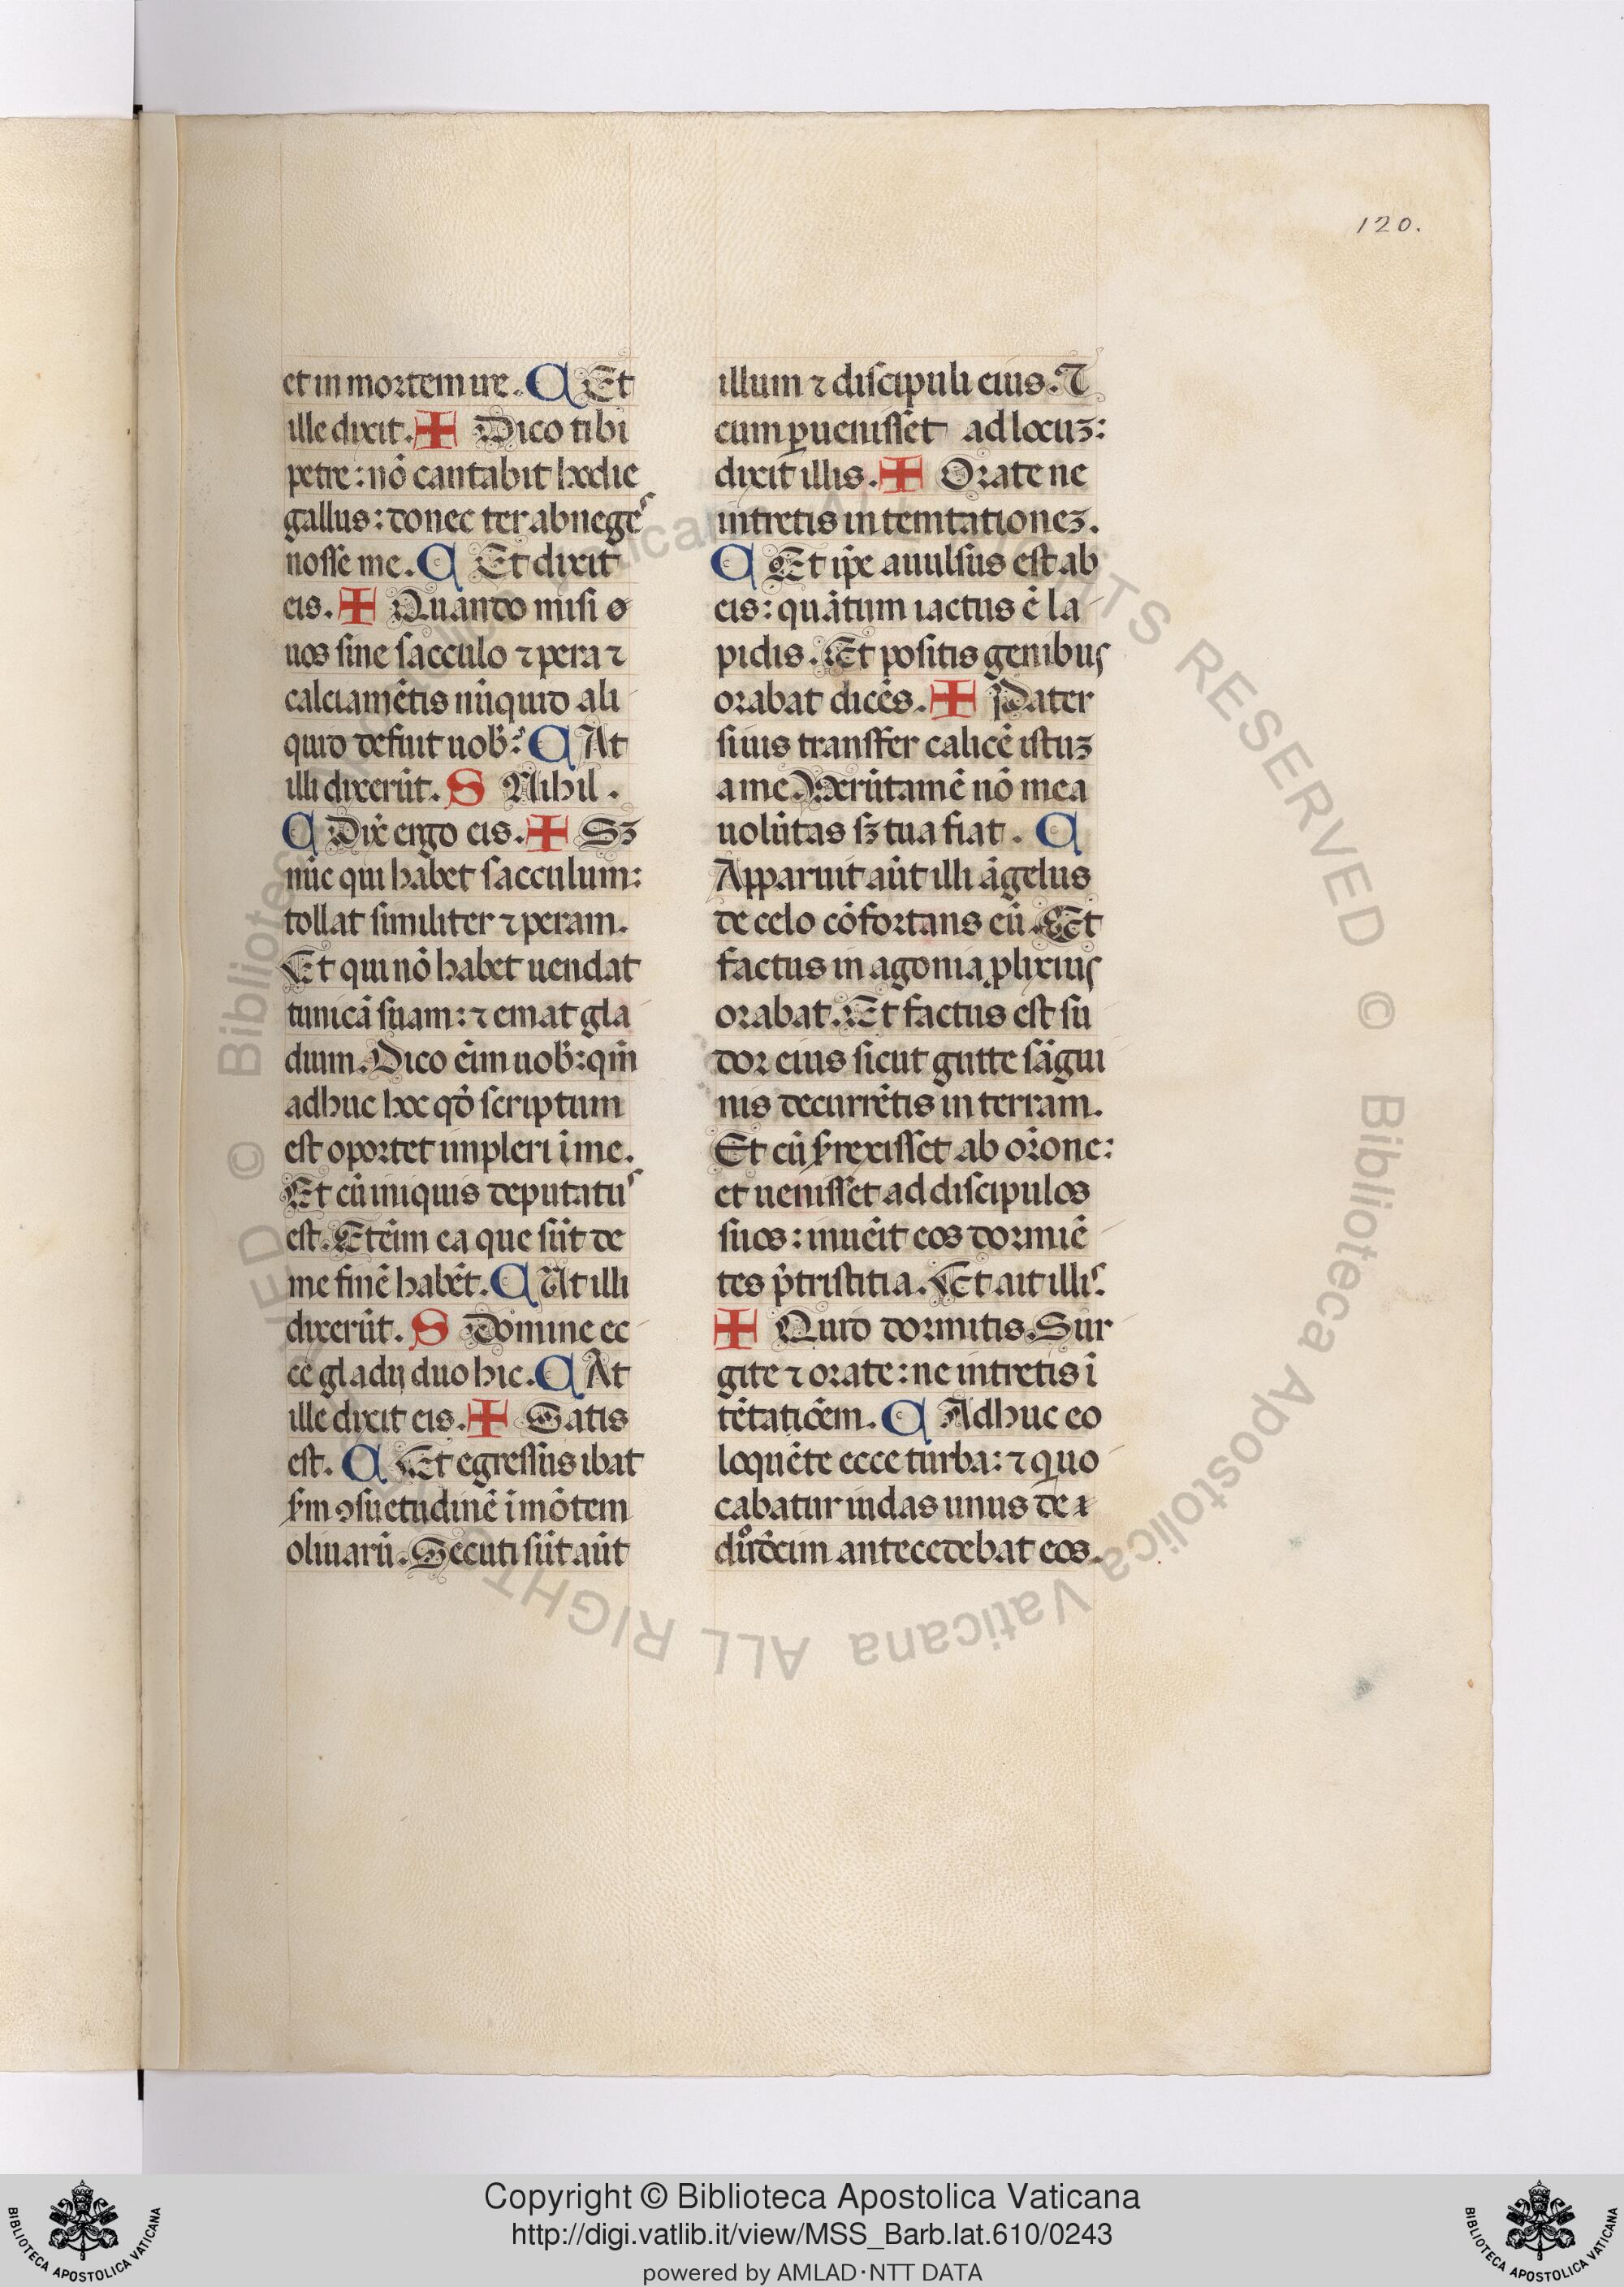 120.
et in mortem ire. C Et
ille dixit. ✠ Dico tibi
petre: nō cantabit hodie
gallus: donec ter abnegēs
nosse me. C Et dixit
eis. ✠ Quando misi
uos sine sacculo ⁊ pera ⁊
calciamētis nūquid ali
quid defuit uob̄? C At
illi dixerūt. S Nihil.
C Dix̄ ergo eis. ✠ Sꝫ
nūc qui habet sacculum:
tollat similiter ⁊ peram.
Et qui nō habet uendat
tunicā suam: ⁊ emat gla
dium. Dico eīm uob̄: qm̄
adhuc hoc qđ scriptum
est oportet impleri ī me.
Et cū iniquis deputatus
est. Eteīm ea que sūt de
me finē habēt. C At illi
dixerūt. S Domine ec
ce gladij duo hic. C At
ille dixit eis. ✠ Satis
est. C Et egressus ibat
ẜm ꝯsuetudinē ī mōtem
oliuarū. Secuti sūt aūt
illum ⁊ discipuli eius. ⁊
cum ꝑuenisset ad locuꝫ:
dixit illis. ✠ Orate ne
intretis in temtationeꝫ.
C Et ip̄e auulsus est ab
eis: quātum iactus ē la
pidis. Et positis genibus
orabat dicēs. ✠ Pater
si uis transfer calicē istuꝫ
a me Uerūtamē nō mea
uolūtas sꝫ tua fiat. C
Apparuit aūt illi āgelus
de celo cōfortans eū. Et
factus in agonia ꝓlixius
orabat. Et factus est su
dor eius sicut gutte sāgui
nis decurrētis in terram.
Et cū surrexisset ab orōne:
et uenisset ad discipulos
suos: inuēit eos dormiē
tes p̄ tristitia. Et ait illis.
✠ Quid dormitis. Sur
gite ⁊ orate: ne intretis ī
tētatiōem. C Adhuc eo
loquēte ecce turba: ⁊ qui uo
cabatur iudas unus de
duodecim antecedebat eos.
Copyright © Biblioteca Apostolica Vaticana
http://digi.vatlib.it/view/MSS_Barb.lat.610/0243
powered by AMLAD·NTT DATA
BIBLIOTECA APOSTOLICA VATICANA
BIBLIOTECA APOSTOLICA VATICANA
© Biblioteca Apostolica Vaticana ALL RIGHTS RESERVED © Biblioteca Apostolica Vaticana ALL RIGHTS RESERVED